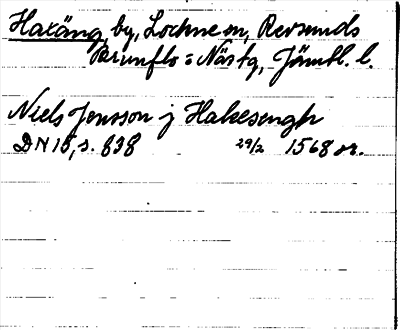 Haxäng, by, Lockne sn, Revsunds
Brunflo o Näs tg, Jämtl. l.
Niels Jonsson j Hakesengh
DN 15, s. 838 29/2 1568 or.